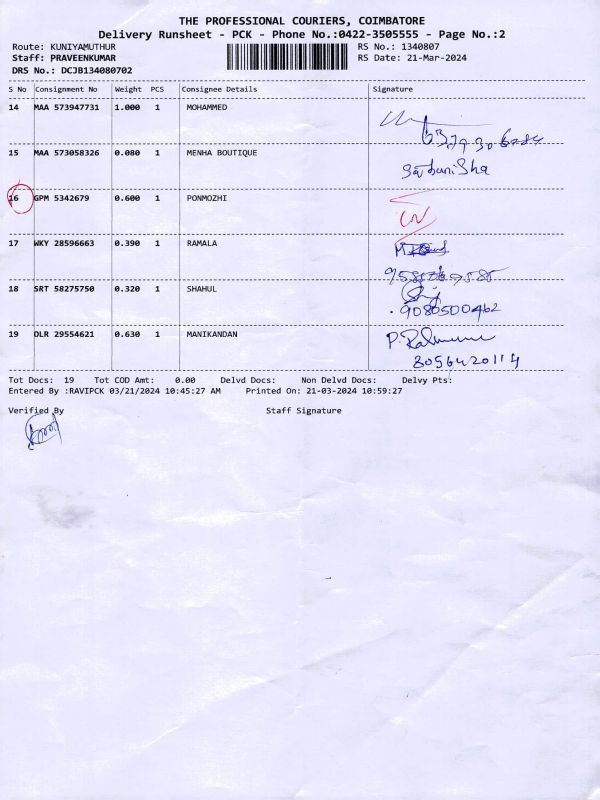 THE PROFESSIONAL COURIERS, COIMBATORE
Delivery Runsheet - PCK - Phone No.:0422-3505555 - Page No.:2
Route: KUNIYAMUTHUR RS No.: 1340807
Staff: PRAVEENKUMAR RS Date: 21-Mar-2024
DRS No.: DCJB134080702
S No Consignment No Weight PCS Consignee Details Signature
14 MAA 573947731 1.000 1 MOHAMMED
15 MAA 573058326 0.080 1 MENHA BOUTIQUE
16 GPM 5342679 0.600 1 PONMOZHI
17 WKY 28596663 0.390 1 RAMALA
18 SRT 58275750 0.320 1 SHAHUL
9080500462
19 DLR 29554621 0.630 1 MANIKANDAN
8056420114
Tot Docs: 19 Tot COD Amt: 0.00 Delvd Docs: Non Delvd Docs: Delvy Pts:
Entered By :RAVIPCK 03/21/2024 10:45:27 AM Printed On: 21-03-2024 10:59:27
Verified By Staff Signature